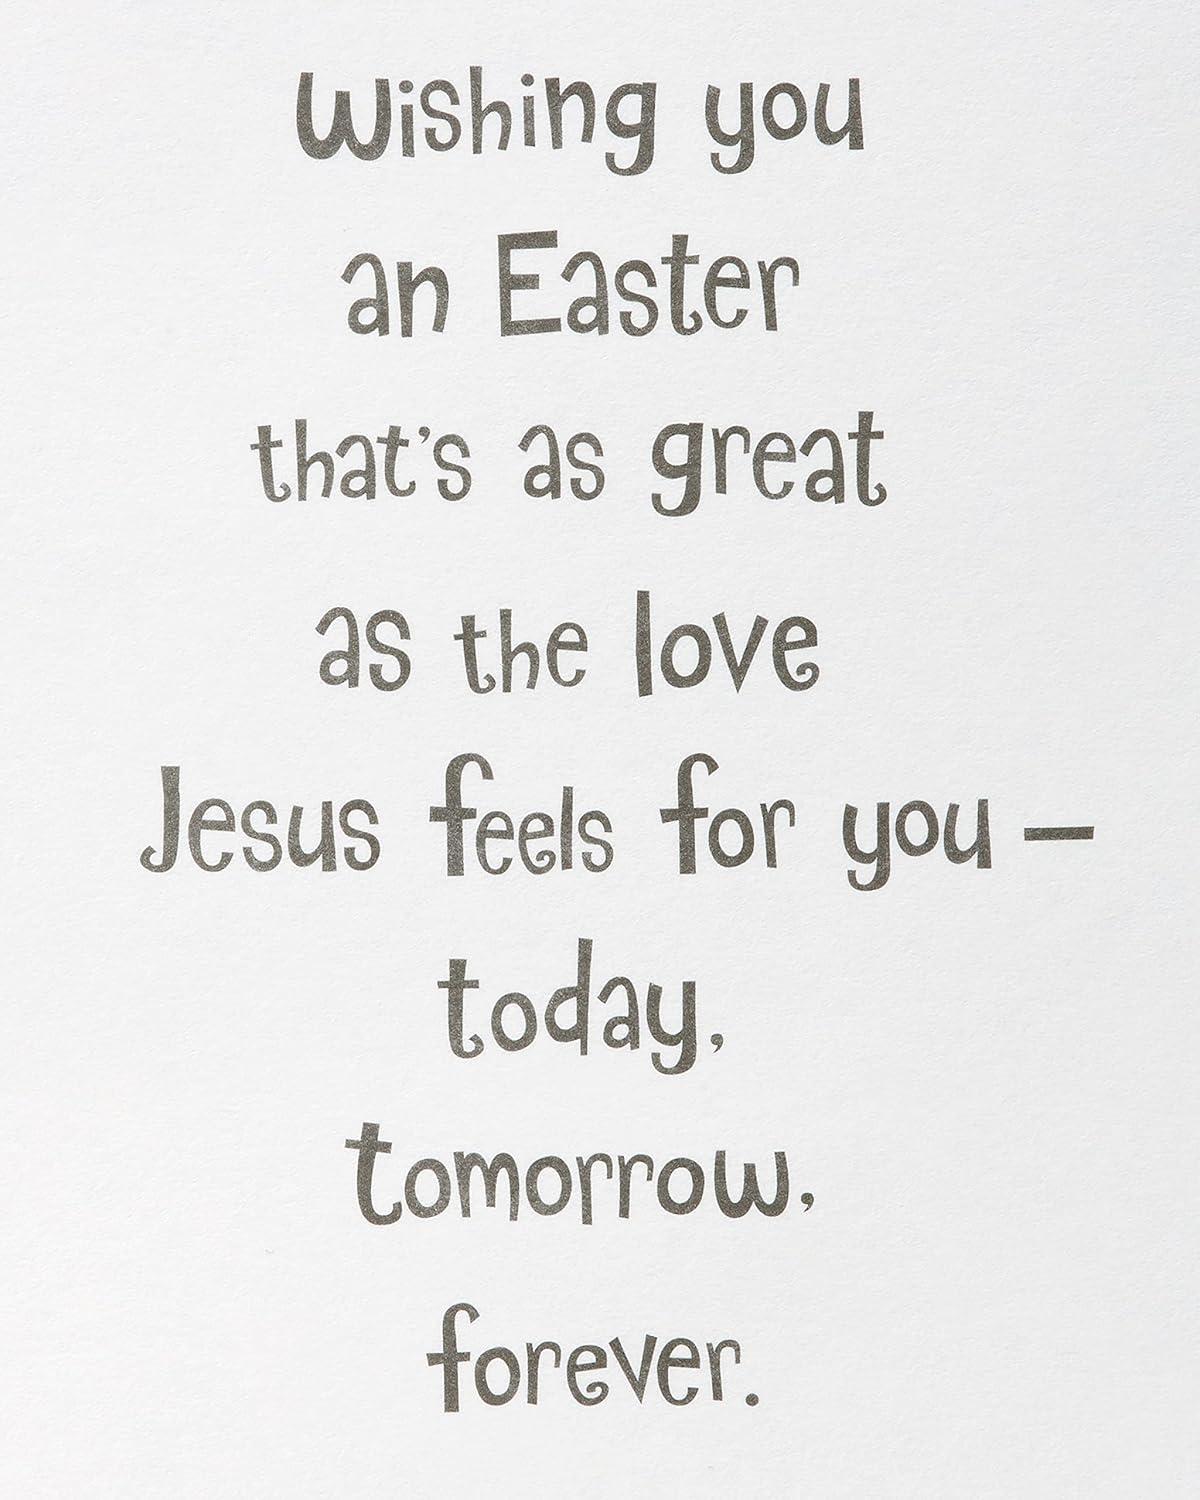 Wishing you
an Easter
that's as great
as the love
Jesus feels for you –
today,
tomorrow,
forever.